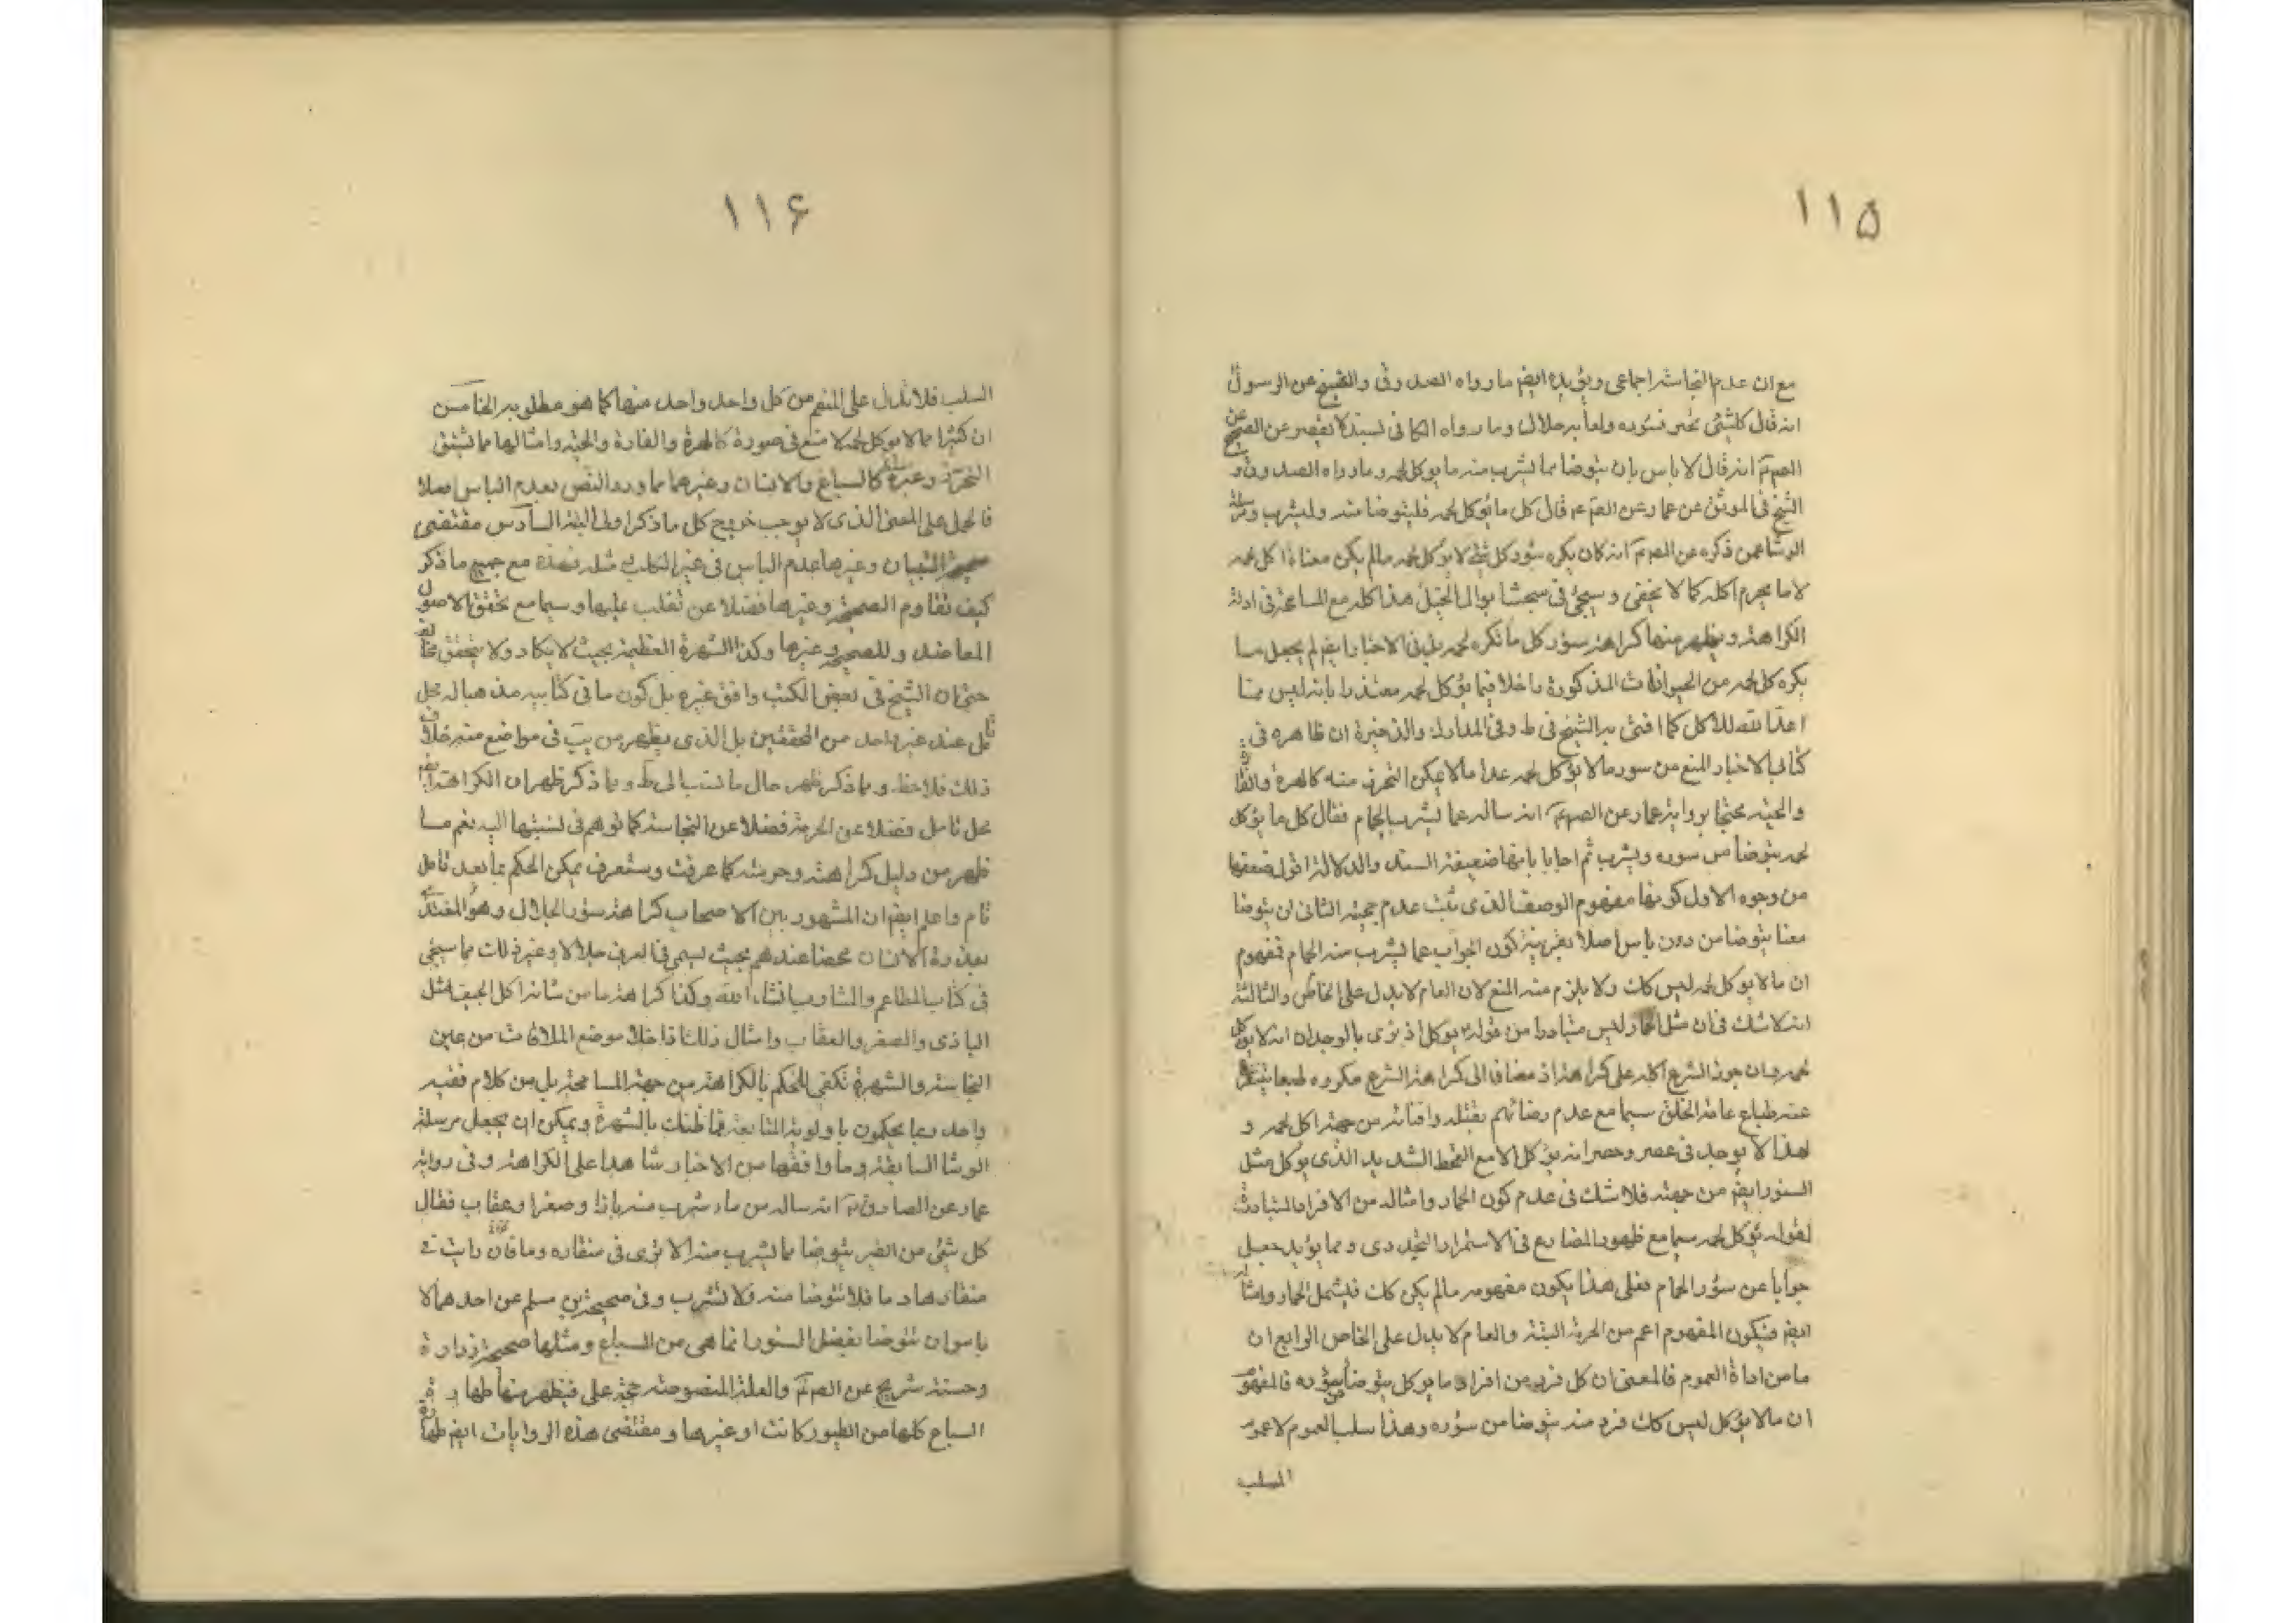 ۱۱۵
مع ان عدم النجاسة اجماعى ويؤيده ايضم ما رواه الصدوق والشيخ عن الرسول
انه قال كلشئ يجتر فسؤره ولعابه حلال وما رواه الكافى لسند لا يقصر عن الصحيح عن
الصم انه قال لا باس بان يتوضا مما يشرب منه ما يوكل لحمه وما رواه الصدوق و
الشيخ فى الموثق عن عمار عن الصم قال كل ما يؤكل لحمه فليتوضا منه وليشرب ومرسلة
الوشا عمن ذكره عن الصم انه كان يكره سؤر كل شئ لا يؤكل لحمه مالم يكن معناه اكل لحمه
لا ما يحرم اكله كما لا يخفى وسيجئ فى مبحث ابوال الخيل هذا كله مع المسامحة فى ادلة
الكراهة ويظهر منها كراهة سؤر كل ما نكره لحمه بل فى الاخبار ايضم لم يجعل مما
يكره اكل لحمه من الحيوانات المذكورة داخلا فيما يؤكل لحمه معتذرا بانه ليس مما
اعدا لله للاكل كما افتى به الشيخ فى ط وفى المدارك والذخيرة ان ظاهره فى
كتابى الاخبار المنع من سور مالا يؤكل لحمه عدا مالا يمكن التحرز منه كالهرة والفارة
والحية محتجا برواية عمار عن الصم انه ساله عما يشرب الحمام فقال كل ما يؤكل
لحمه يتوضا من سوره ويشرب ثم اجابا بانها ضعيفة السند والدلالة اقول ضعفها
من وجوه الاول كونها مفهوم الوصف الذى ثبت عدم حجيته الثانى ان يتوضا
معنا يتوضا من دون باس اصلا بقرينة كون الجواب عما يشرب منه الحمام فمفهوم
ان مالا يوكل لحمه ليس كك ولا يلزم منه المنع لان العام لا يدل على الخاص والثالثة
انه لا شك فى ان مثل الحمار ليس متبادرا من قوله يوكل اذ نرى بالوجدان انه لا يوكل
لحمه وان جوز الشرع اكله على كراهة اذ مضافا الى كراهة الشرع مكروه طبعا يتنفر
عنه طباع عامة الخلق سيما مع عدم رضائهم بقتله وافنائه من جهة اكل لحمه و
لهذا لا يوجد فى عصر ومصر انه يؤكل الا مع القحط الشديد الذى يوكل مثل
السنور ايضم من جهته فلا شك فى عدم كون الحمار وامثاله من الافراد المتبادرة
لقوله يؤكل لحمه سيما مع ظهور المضارع فى الاستمرار التجددى ومما يؤيد جعل
جوابا عن سؤر الحمام فعلى هذا يكون مفهومه مالم يكن كك فيشمل الحمار وامثاله
ايضم فيكون المفهوم اعم من الحرمة البتة والعام لا يدل على الخاص الرابع ان
ما من اداة العموم فالمعنى ان كل فرد من افراد ما يوكل يتوضا من سؤره فالمفهوم
ان مالا يؤكل ليس كك فرد منه يتوضا من سؤره وهذا سلب العموم لا عموم
السلب
۱۱۶
السلب فلا تدل على المنع من كل واحد واحد منها كما هو مطلوبه الخامس
ان كثيرا مما لا يوكل لحمه لا منع فى صورة كالهرة والفارة والحية وامثالها مما لشق
التحرز وغيره كالسباع والانسان وغيرهما مما ورد النص بعدم الباس فعلا
فالحمل على المعنى الذى لا يوجب خروج كل ما ذكر اولى البتة السادس مقتضى
صحيحة البقباق وغيرها عدم الباس فى غير الكلب مثله فهذه مع جميع ما ذكر
كيف تقاوم الصحيحة وغيرها فضلا عن تغلب عليها وسيما مع تحقق الاصول
المعاضدة وللصحيحة وغيرها وكذا الشهرة العظيمة بحيث لا يكاد ولا يتحقق مخالفة
حتى ان الشيخ فى بعض الكتب وافق غيره بل كون ما فى كتابيه مذهبا له محل
تامل عند غير واحد من المحققين بل الذى يظهر من يب فى مواضع منه خلاف
ذلك فلاحظ وبما ذكر ظهر حال ما نسب الى ط وبما ذكر ظهر ان الكراهة ايضا
محل تامل فضلا عن الحرمة فضلا عن النجاسة كما توهم فى نسبتها اليه نعم مما
ظهر من دليل كراهته وحرمته كما عرفت وستعرف يمكن الحكم بها بعد تامل
تام واعلم ايضم ان المشهور بين الاصحاب كراهة سؤر الجلال وهو المغتذى
بعذرة الانسان محضا عندهم بحيث يسمى فى العرف جلالا وغير ذلك مما سيجئ
فى كتاب المطاعم والمشارب انشاء الله وكذا كراهة ما من شانه اكل الجيف مثل
البازى والصقر والعقاب وامثال ذلك اذا خلا موضع الملاقات من عين
النجاسة والشهرة تكفى للحكم بالكراهة من جهة المسامحة بل من كلام فقيه
واحد ربما يحكمون باولوية المتابعة فما ظنك بالشهرة ويمكن ان يجعل مرسلة
الوشا السابقة وما وافقها من الاخبار شاهدا على الكراهة وفى رواية
عمار عن الصادق انه ساله من ماء شرب منه باز او صقر او عقاب فقال
كل شئ من الطير يتوضا مما يشرب منه الا ترى فى منقاره وما فان رايت فى
منقارها دما فلا تتوضا منه ولا تشرب وفى صحيحة بن مسلم عن احدهما لا
باس ان تتوضا بفضل السنور انما هى من السباع ومثلها صحيحة زرارة
وحسنة شريح عن الصم والعلة المنصوصة حجة على فيظهر منها طهارة
السباع كلها من الطيور كانت او غيرها ومقتضى هذه الروايات ايضم طهارة